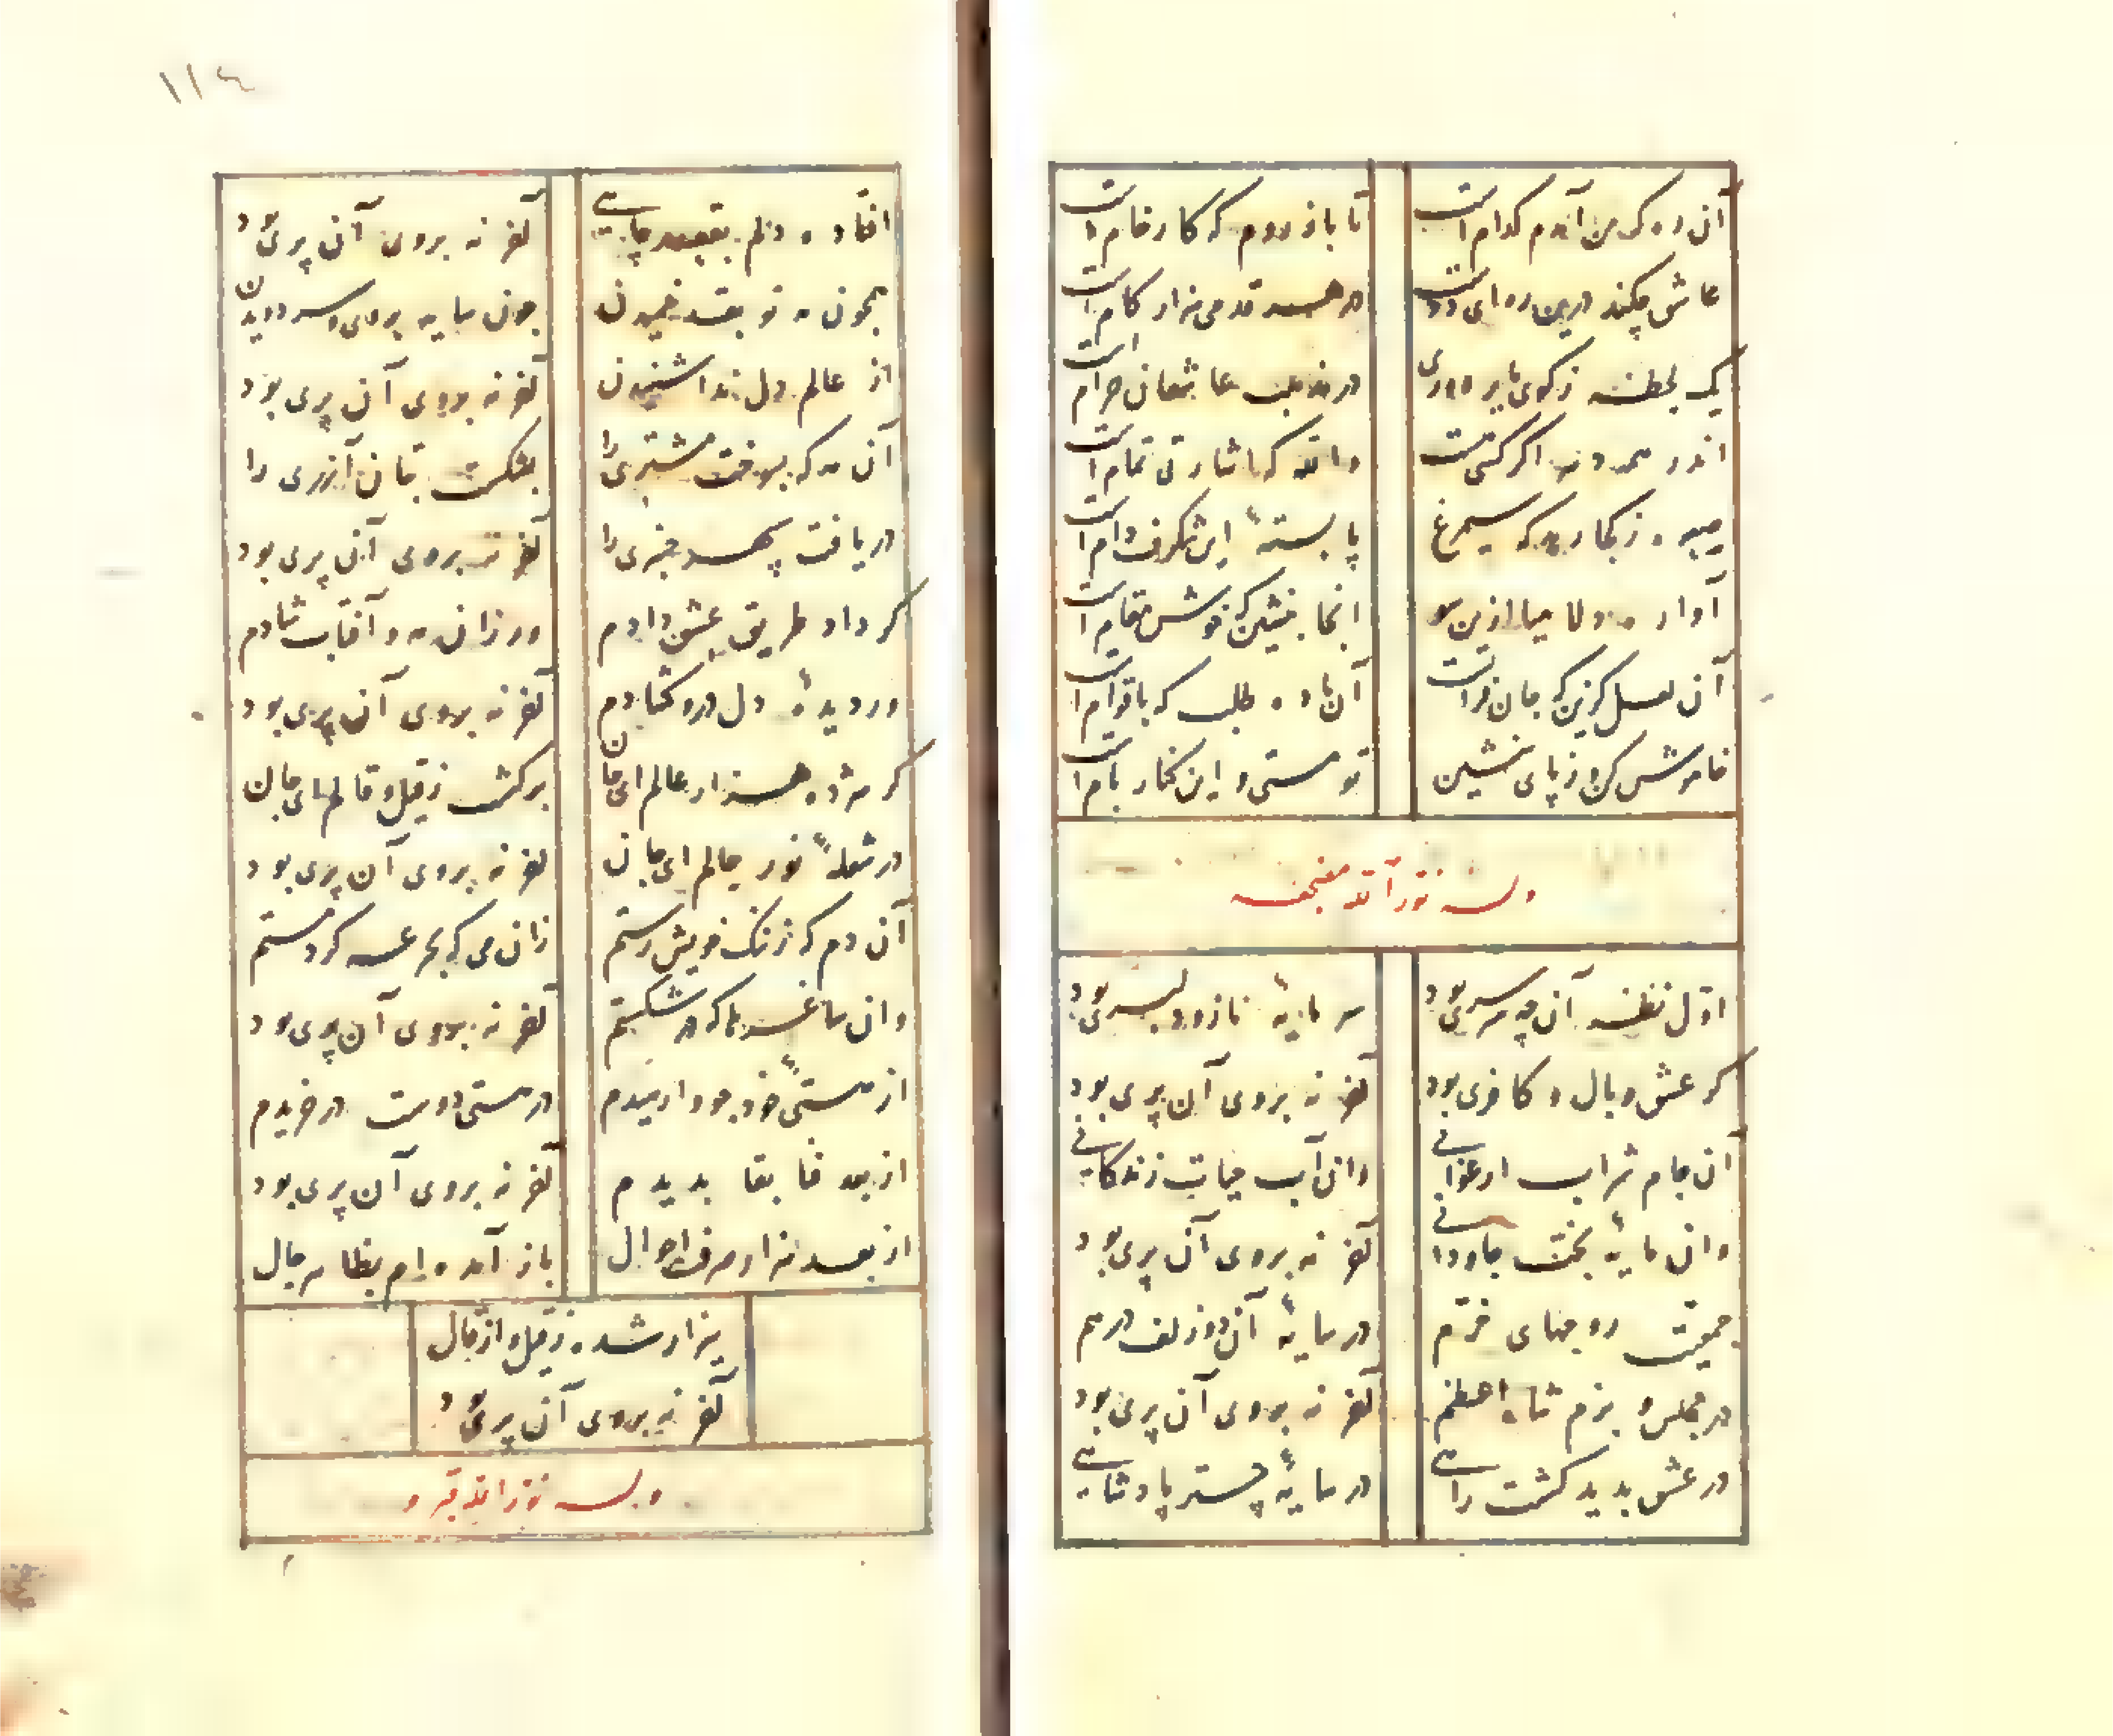 ١١٤
آن ره که من آمدم کدام است
تا باز روم که کار خام است
عاشق چکند درین ره ای دوست
در هر قدمی هزار کام است
یک لحظه ز کوی یار دوری
در مذهب عاشقان حرام است
اندر همه ده اگر کسی هست
والله که اشارتی تمام است
صعوه ز کجا رهد که سیمرغ
پا بستهٔ این شگرف دام است
آواره دلا میا ازین سو
آنجا بنشین که خوش مقام است
آن نقل گزین که جان فزاست
آن باده طلب که باقوام است
خاموش کن و ز پای بنشین
تو مستی و این کنار بام است
وله نور الله مضجعه
اول نظر ار چه سرسری بود
سرمایهٔ ناز و دلبری بود
گر عشق وبال و کافری بود
آخر نه بروی آن پری بود
آن جام شراب ارغوانی
وان آب حیات زندگانی
وان مایهٔ بخت جاودانی
آخر نه بروی آن پری بود
جمعیت روحهای خرم
در سایهٔ آن دو زلف درهم
در مجلس و بزم شاه اعظم
آخر نه بروی آن پری بود
در عشق بدید گشت رائی
در سایهٔ چتر پادشائی
افتاده دلم بقصد جائی
آخر نه بروی آن پری بود
همچون مه نو بقد خمیدن
چون سایه بروی و سر دویدن
از عالم دل ندا شنیدن
آخر نه بروی آن پری بود
آن مه که بسوخت مشتری را
بشکست بتان آزری را
در یافت بهر خبری را
آخر نه بروی آن پری بود
گر داد طریق عشق دادم
ور زان مه و آفتاب شادم
ور دیدهٔ دل درو گشادم
آخر نه بروی آن پری بود
گر مژده هزار عالم ای جان
برگشت ز قیل و قالم ای جان
در شعلهٔ نور حالم ای جان
آخر نه بروی آن پری بود
آن دم که ز ننگ خویش رستم
زان می که بجرعه کرد مستم
وان ساغرها که در شکستم
آخر نه بروی آن پری بود
از مستی خود بخود ارمیدم
در مستی دوست در خزیدم
از بعد فنا بقا بدیدم
آخر نه بروی آن پری بود
از بعد هزار صرف احوال
باز آمده ام بظاهر حال
بیزار شده ز قیل و از قال
آخر نه بروی آن پری بود
وله نور الله قبره